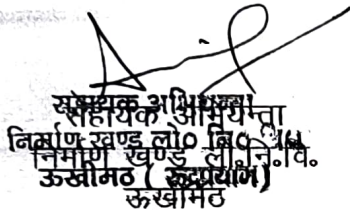 सहायक अभियन्ता
सहायक अभियन्ता
निर्माण खण्ड लो० नि०
निर्माण खण्ड लो.नि.वि.
ऊखीमठ ( रूद्रप्रयाग)
ऊखीमठ